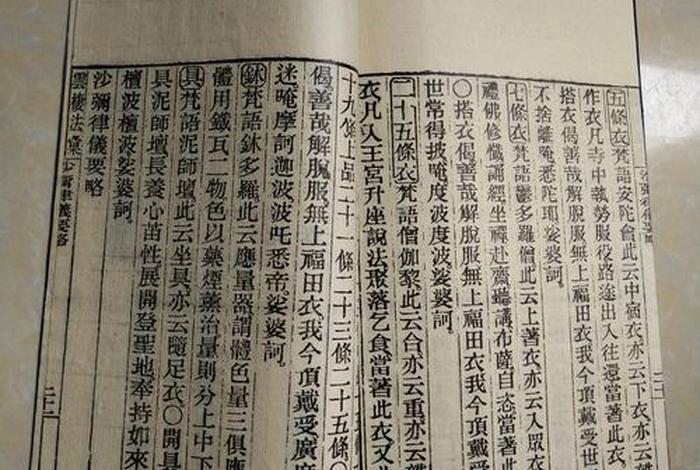 五條衣梵語安陀會此云中宿衣亦云下衣亦云
作衣凡寺中執勞服役路途出入往還當著此衣
搭衣偈善哉解脫服無上福田衣我今頂戴受世
不捨離唵悉陀耶娑婆訶
七條衣梵語鬱多羅僧此云上著衣亦云入眾衣
禮佛修懺誦經坐禪赴齋聽講布薩自恣當著此
〇搭衣偈善哉解脫服無上福田衣我今頂戴
世常得披唵度波度波娑婆訶
二十五條衣梵語僧伽黎此云合亦云重亦云
衣凡入王宮升座說法聚落乞食當著此衣又
十九條上品二十一條二十三條二十五條〇
偈善哉解脫服無上福田衣我今頂戴受廣
迷唵摩訶迦波波吒悉帝娑婆訶
鉢梵語鉢多羅此云應量器謂體色量三俱應
體用鐵瓦二物色以藥煙熏治量則分上中下
具梵語泥師壇此云坐具亦云隨足衣〇開具
具泥師壇長養心苗性展開登聖地奉持如來
檀波檀波娑婆訶
沙彌律儀要略
雲棲法彙 沙彌律儀要略
二十二